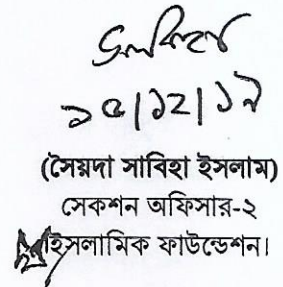 ১৫/১২/১৯
(সৈয়দা সাবিহা ইসলাম)
সেকশন অফিসার-২
ইসলামিক ফাউন্ডেশন।